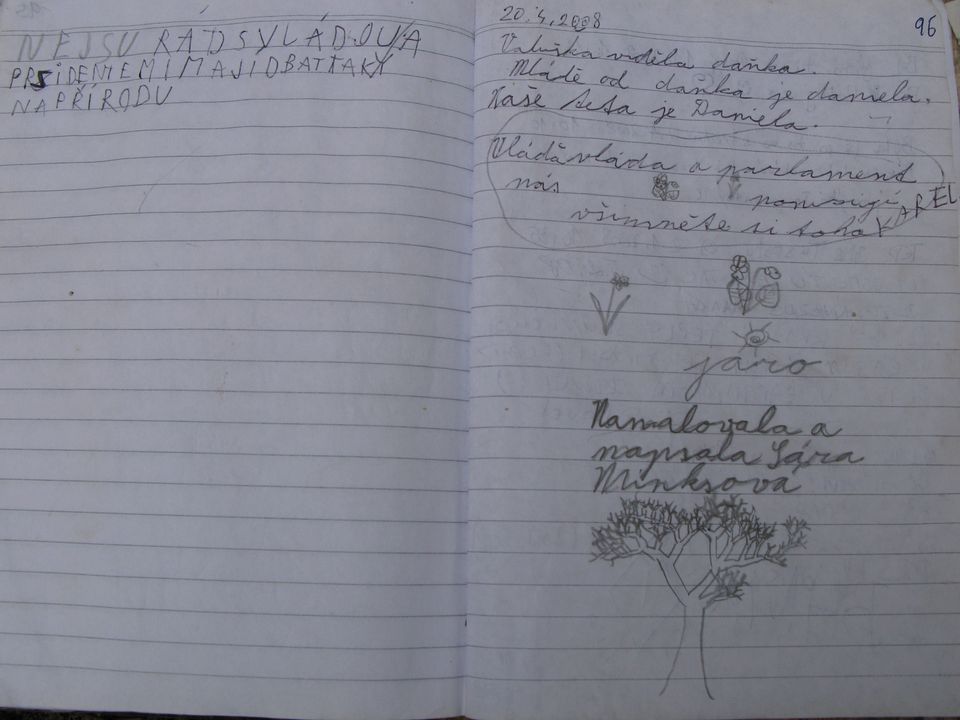 NEJSU RÁD S VLÁDOU A
PRSIDENTEM I MAJI DBAT TAKY
NA PŘÍRODU
20.4.2008
96
Valuška viděla daňka.
Mládě od daňka je daniela.
Naše teta je Daniela.
Vláďa vláda a parlament
nás
všimněte si toho KAREL
jaro
Namalovala a
napsala Sára
Minksová